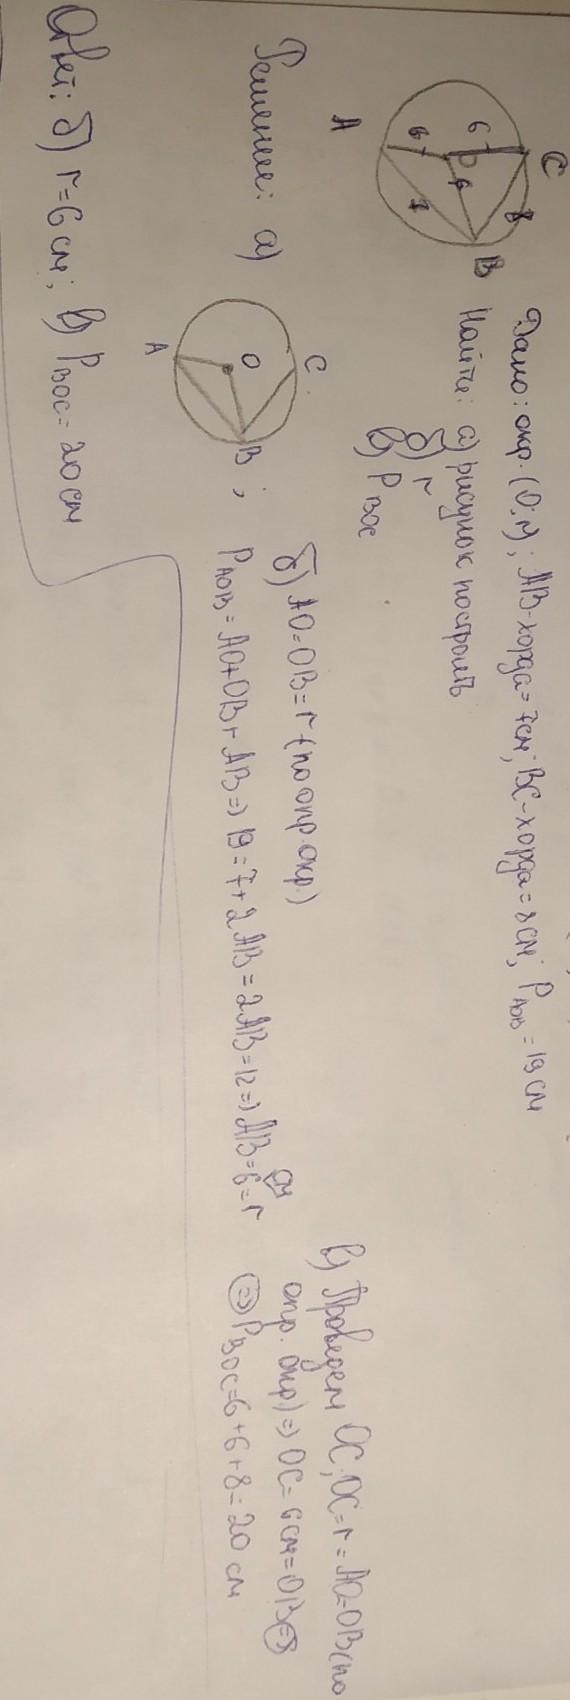 C
6
6
6
8
7
O
A
B
Дано: окр. (O; r); AB-хорда=7см; BC-хорда=8см; P AOB = 19 см
Найти: а) рисунок построить
б) r
в) P BOC
Решение: а)
C
O
A
B ;
б) AO=OB=r (по опр. окр.)
P AOB = AO+OB+AB => 19 = 7+2AB = 2AB=12 => AB=6 см=r
в) Проведем OC; OC=r=AO=OB (по
опр. окр.) => OC=6см=OB =>
=> P BOC=6+6+8=20 см
Ответ: б) r=6 см; в) P BOC = 20 см